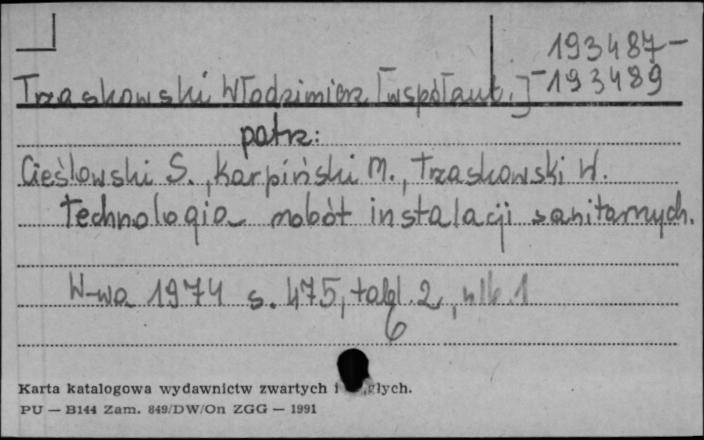 193487-
Trzaskowski Włodzimierz [współaut.] -193489
patrz:
Cieślowski S., Karpiński M., Trzaskowski W.
Technologia robót instalacji sanitarnych.
W-wa 1974 s. 475, tabl. 2, nlb. 1
6
Karta katalogowa wydawnictw zwartych i głych.
PU — B144 Zam. 849/DW/On ZGG — 1991